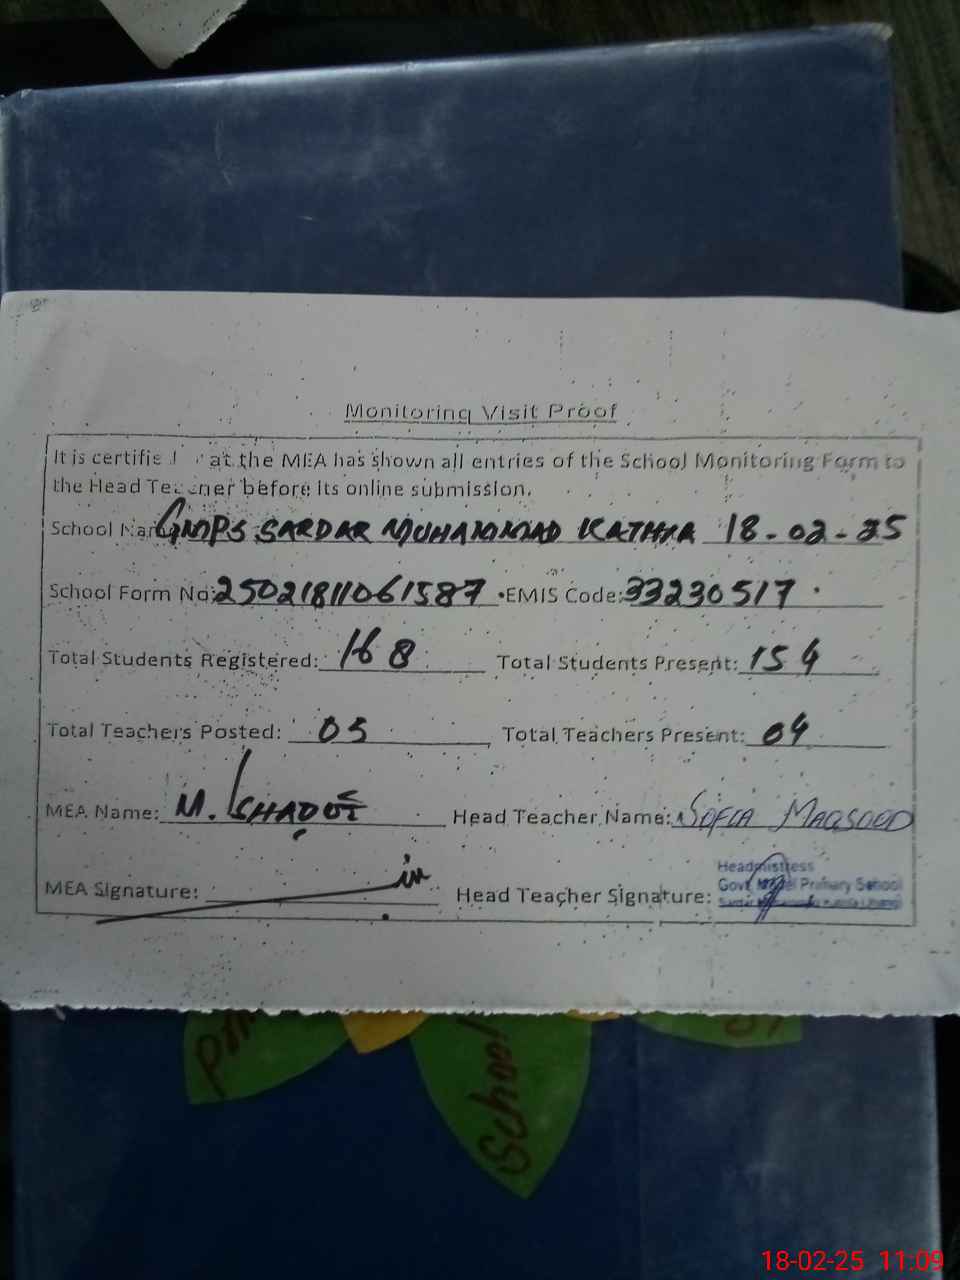 Monitoring Visit Proof
It is certifie at the MEA has shown all entries of the School Monitoring Form to
the Head Teacher before its online submission.
School Nam GMPS SARDAR MUHAMMAD KATHIA 18-02-25
School Form No: 25021811061587 . EMIS Code: 33230517 .
Total Students Registered: 168 Total Students Present: 154
Total Teachers Posted: 05 Total Teachers Present: 04
MEA Name: M. Head Teacher Name: SOFIA MAQSOOD
Headmistress
MEA Signature: Head Teacher Signature: Govt Model Primary School
Sardar
School
18-02-25 11:09